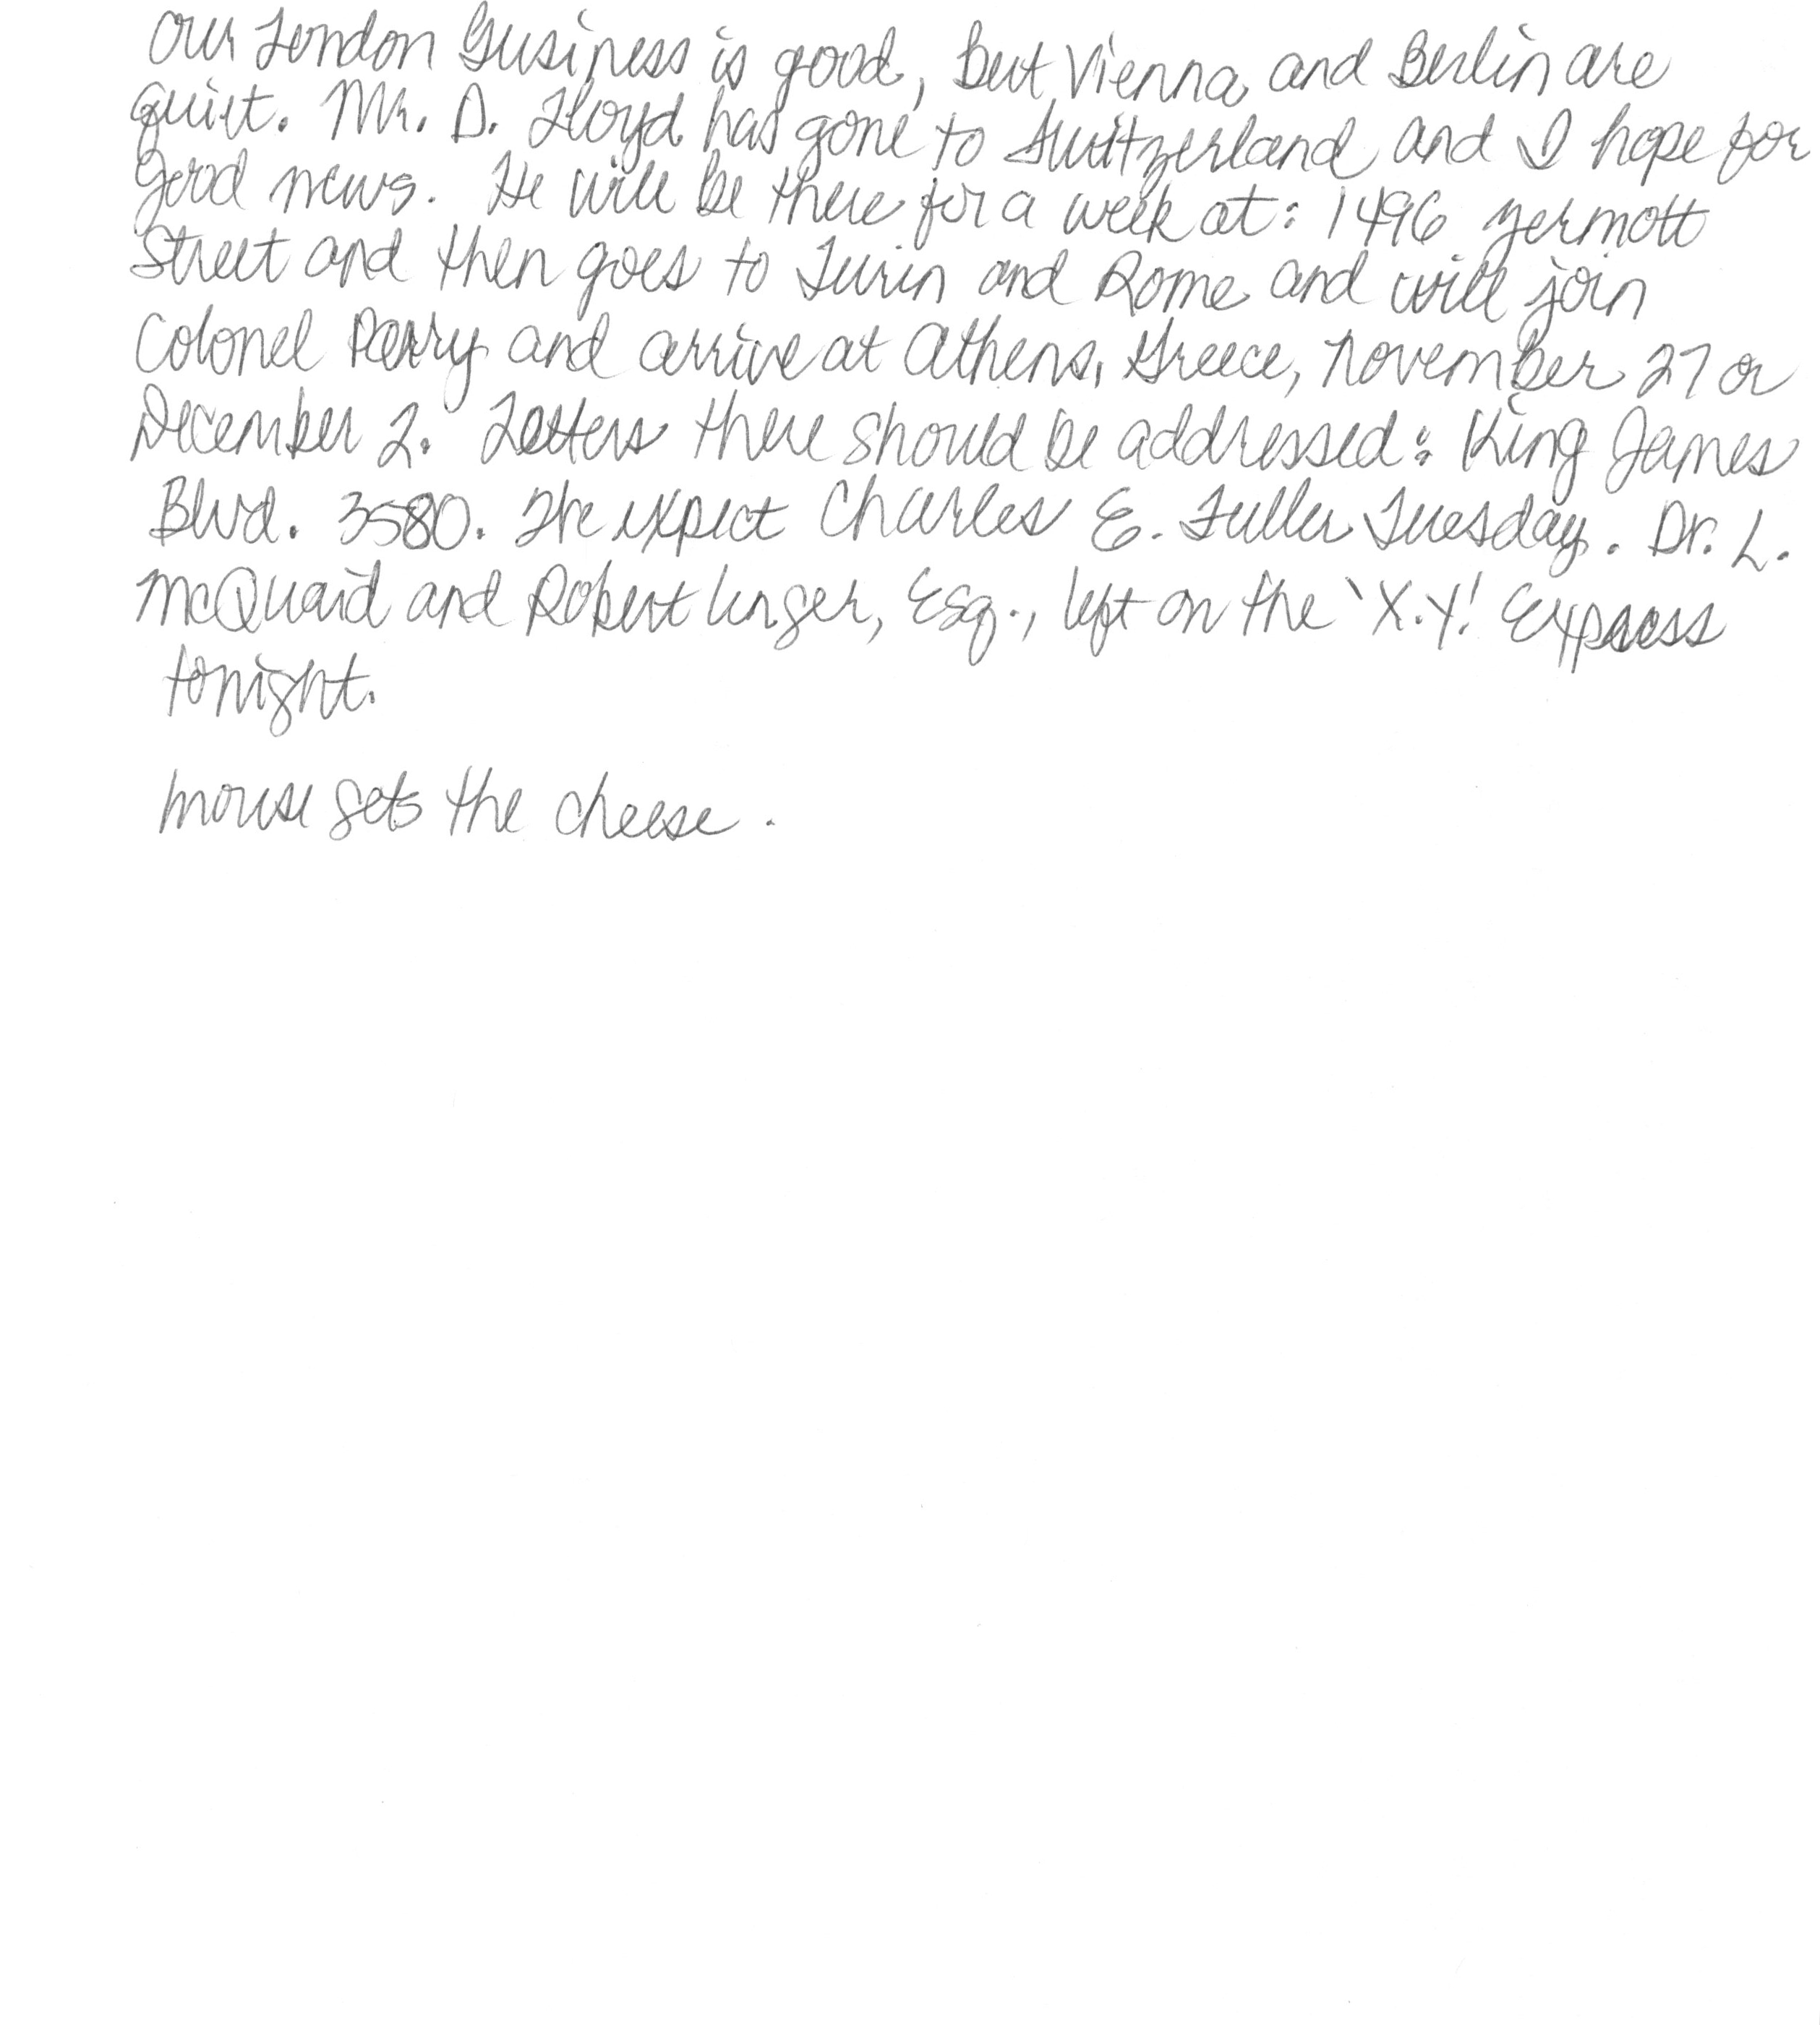 Our London Business is good, but Vienna and Berlin are
quiet. Mr. D. Lloyd has gone to Switzerland and I hope for
good news. He will be there for a week at: 1496 Zermott
Street and then goes to Turin and Rome and will join
Colonel Parry and arrive at Athens, Greece, November 27 or
December 2. Letters there should be addressed: King James
Blvd. 3580. We expect Charles E. Fuller Tuesday. Dr. L.
McQuaid and Robert Unger, Esq., left on the 'X.Y.' Express
tonight.
mouse gets the cheese.